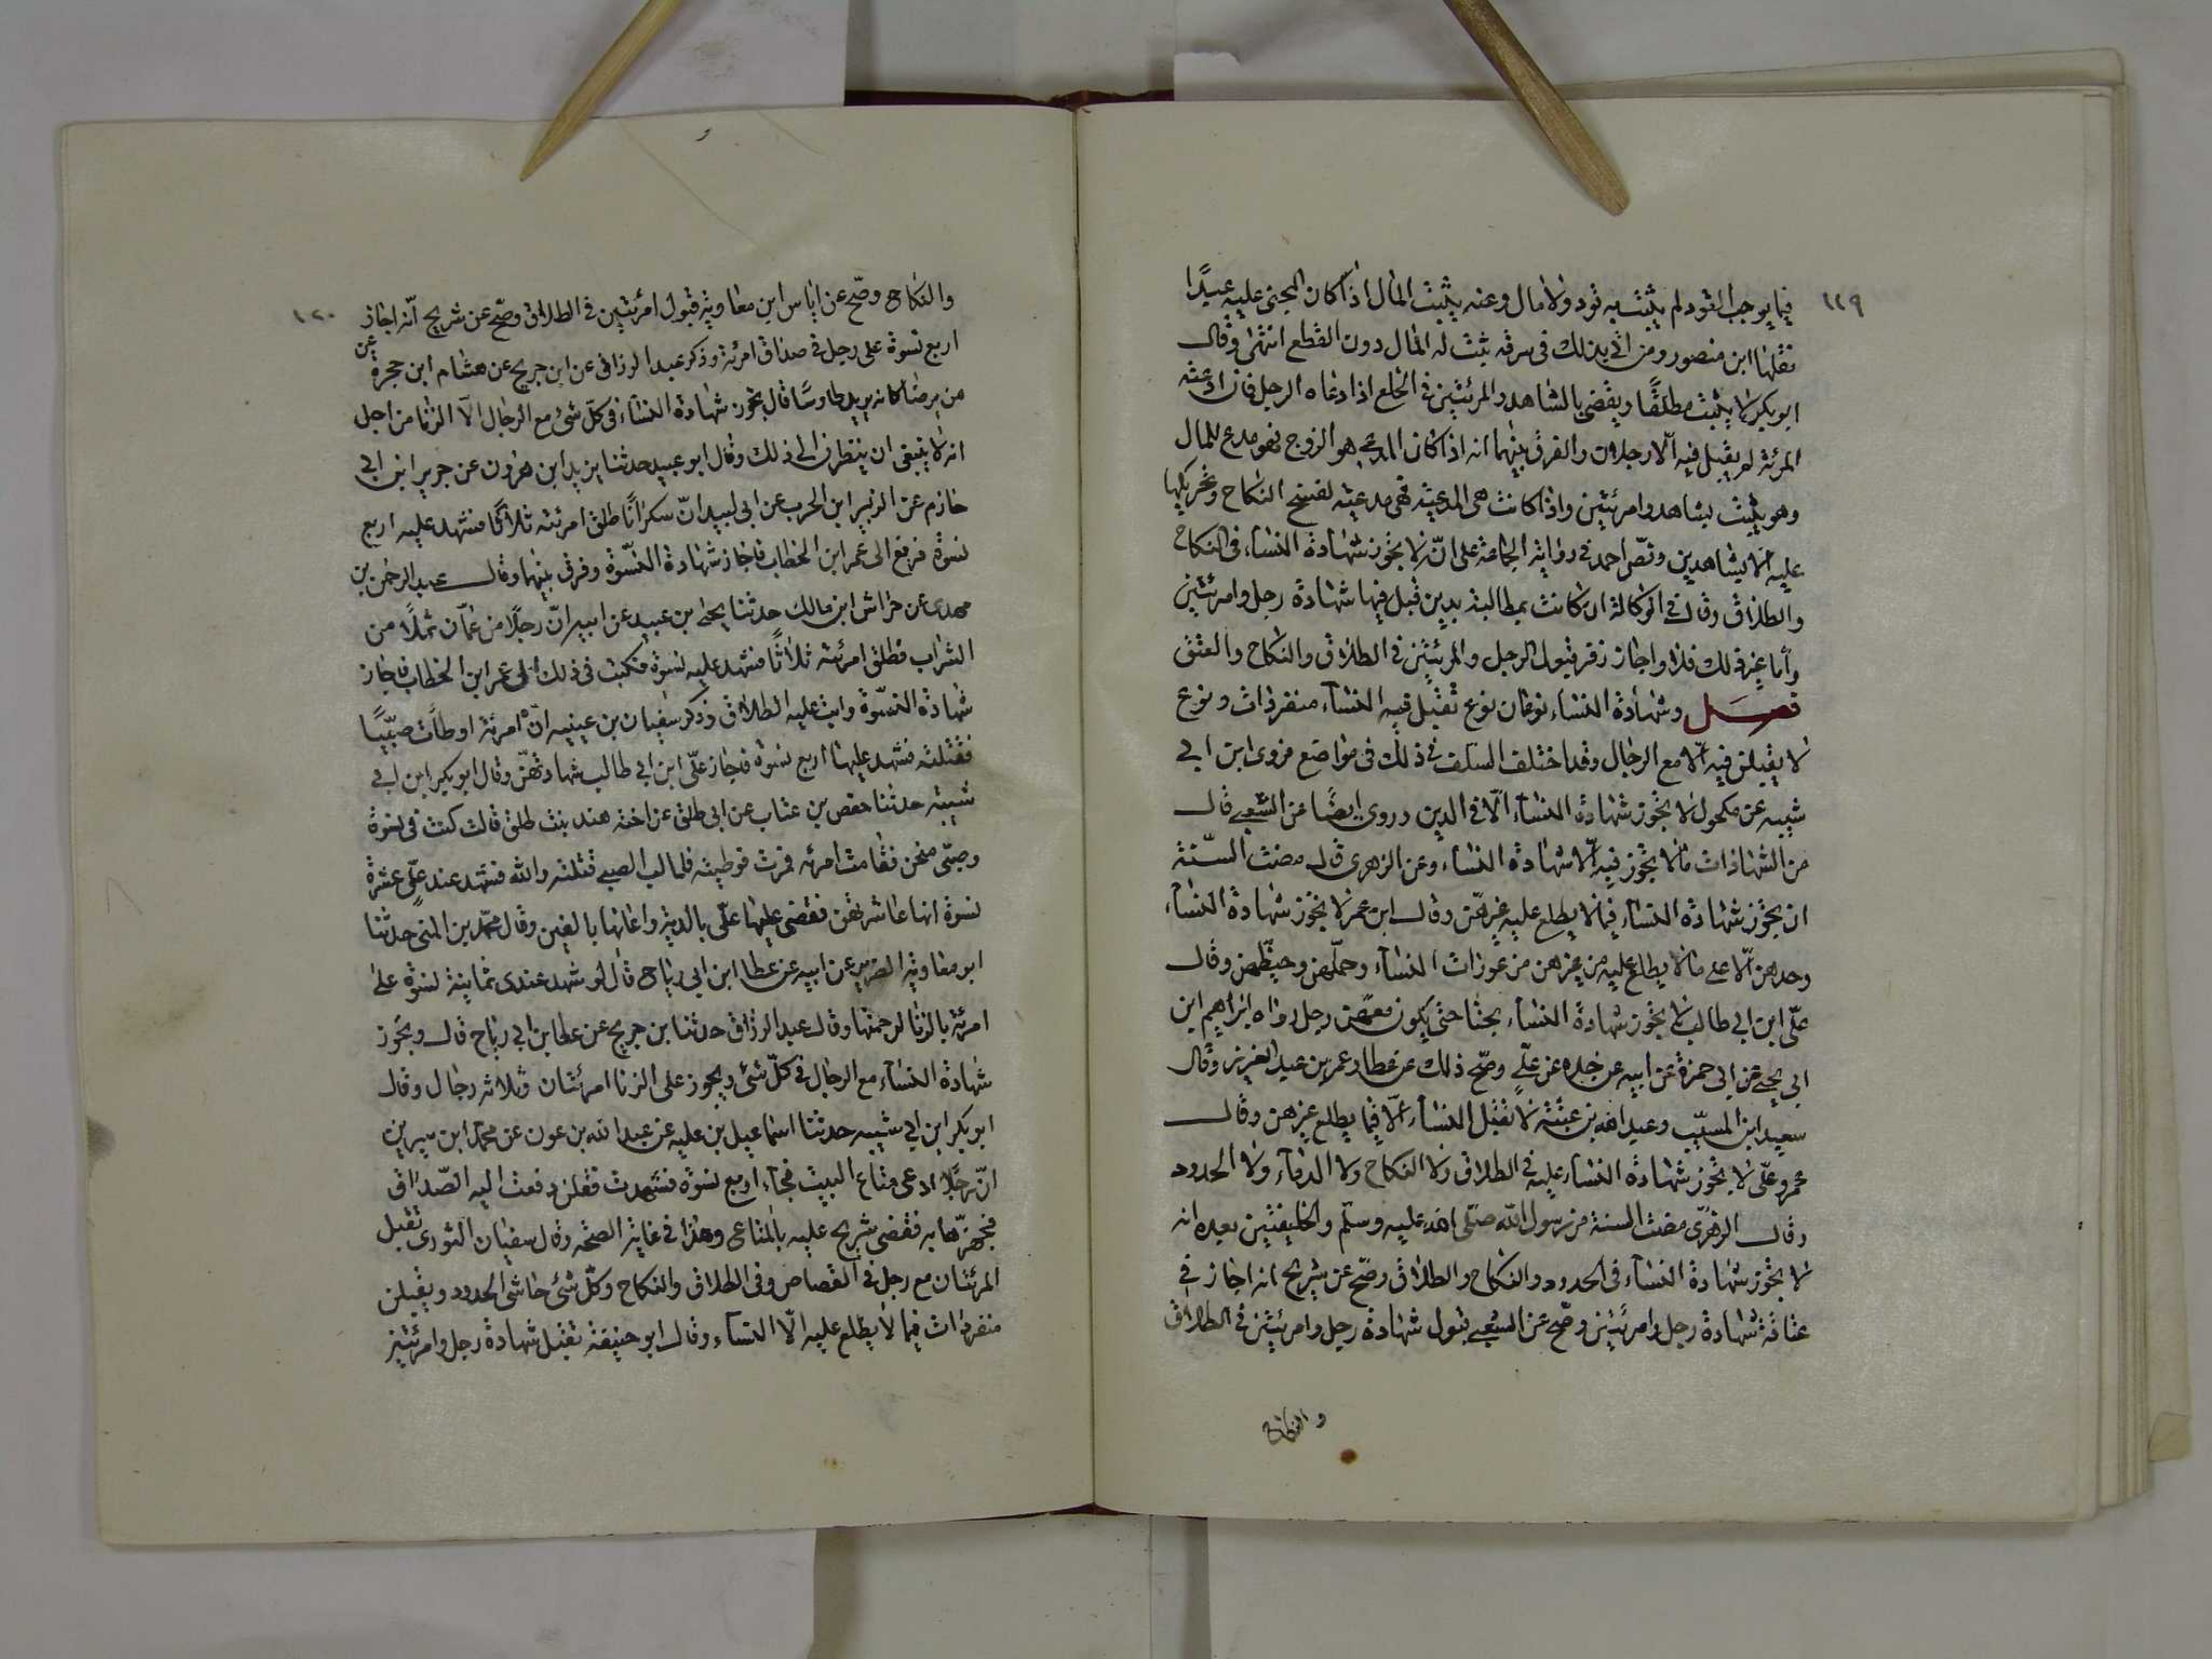 ١١٩
فيما يوجب القود لم يثبت به قود ولا مال وعنه يثبت المال اذا كان المجنى عليه عبدًا
نقلها ابن منصور ومن اتى بذلك فى سرقه ثبت له المال دون القطع انتهى وقال
ابو بكر لا يثبت مطلقًا ويقضى بالشاهد والمرئتين فى الخلع اذا ادعاه الرجل فان ادعته
المرئة لم يقبل فيه الّا رجلان والفرق بينهما انه اذا كان المدعى هو الزوج فهو مدع للمال
وهو يثبت بشاهد وامرئتين واذا كانت هى المدعية فهى مدعية لفسخ النكاح وتحريكها
عليه الا بشاهدين ونصّ احمد فى رواية الجماعة على انّه لا يجوز شهادة النساء فى النكاح
والطلاق وقال فى الوكالة ان كانت بمطالبة بدين قبل فيها شهادة رجل وامرئتين
وأما غير ذلك فلا واجاز زفر قبول الرجل والمرئيتين فى الطلاق والنكاح والعتق
فصل وشهادة النساء نوعان نوع تقبل فيه النساء منفردات ونوع
لا يقبلن فيه الّا مع الرجال وقد اختلف السلف فى ذلك فى مواضع فروى ابن ابى
شيبه عن مكحول لا يجوز شهادة النساء الّا فى الدين وروى ايضًا عن الشعبى قال
من الشهادات ما لا يجوز فيه الّا شهادة النساء وعن الزهرى قال مضت السّنة
ان يجوز شهادة النساء فيما لا يطلع عليه غيرهن وقال ابن عمر لا يجوز شهادة النساء
وحدهن الّا على ما لا يطلع عليه من غيرهن من عورات النساء وحملهن وحيضهن وقال
علّى ابن ابى طالب لا يجوز شهادة النساء بحتا حتى يكون معهن رجل رواه ابراهيم ابن
ابى يحيى عن ابى حمزة عن ابيه عن جده عن علّى وصح ذلك عن عطا وعمر بن عبد العزيز وقال
سعيد ابن المسيّب وعبد الله بن عتبة لا تقبل النساء الّا فيما يطلع غيرهن وقال
عمر وعلّى لا يجوز شهادة النساء عليه فى الطلاق ولا النكاح ولا الدماء ولا الحدود
وقال الزهرّى مضت السنة من رسول الله صلى الله عليه وسلم والخليفتين بعده انه
لا يجوز شهادة النساء فى الحدود والنكاح والطلاق وصح عن شريح انه اجاز فى
عتاقة شهادة رجل وامرئتين وصح عن الشعبى قبول شهادة رجل وامرئيتين فى الطلاق
والنكاح
١٢٠
والنكاح وصحّ عن اياس ابن معاوية قبول امرئتين فى الطلاق وصحّ عن شريح انّه اجاز
اربع نسوة على رجل فى صداق امرئة وذكر عبد الرزاق عن ابن جريح عن هشام ابن حجرة عن
من يرضا كانه يريد طاوسًا قال يجوز شهادة النساء فى كلّ شئ مع الرجال الّا الزنا من اجل
انه لا ينبغى ان ينظرن الى ذلك وقال ابو عبيد حدثنا يزيد ابن هرون عن جرير ابن ابى
حازم عن الزبير ابن الحرب عن ابى لبيد انّ سكرانًا طلق امرئته ثلاثًا فشهد عليه اربع
نسوة فرفع الى عمر ابن الخطاب فاجاز شهادة النسّوة وفرق بينهما وقال عبد الرحمن بن
مهدى عن خراش ابن مالك حدثنا يحى بن عبيد عن ابيه انّ رجلًا من عمّان ثملًا من
الشراب فطلق امرئته ثلاثًا فشهد عليه نسوة فكتب فى ذلك الى عمر ابن الخطاب فاجاز
شهادة النسّوة واثبت عليه الطلاق وذكر سفيان بن عيينه انّ امرئة اوطأت صبّيًا
فقتلته فشهد عليها اربع نسوة فاجاز علّى ابن ابى طالب شهادتهنّ وقال ابو بكر ابن ابى
شيبة حدثنا حفص بن عتاب عن ابى طلق عن اخته هند بنت طلق قالت كنت فى نسوة
وصبّى فقامت امرئه فمرت فوطيته فقالت الصبى قتلته والله فشهد عند علّى عشرة
نسوة انها عاشرتهن فقضى عليها علّى بالدية واعانها بالفين وقال محمّد بن المثنى حدثنا
ابو معاوية الضرير عن ابيه عن عطا ابن ابى رباح قال لو شهد عندى ثمانية نسوة على
امرئة بالزنا لرجمتها وقال عبد الرزاق حدثنا بن جريح عن عطا بن ابى رباح قال ويجوز
شهادة النساء مع الرجال فى كلّ شئ ويجوز على الزنا امرئتان وثلاثه رجال وقال
ابو بكر ابن ابى شيبه حدثنا اسماعيل بن عليه عن عبد الله بن عون عن محمد ابن سيرين
انّ رجلًا ادعى متاع البيت فجاء اربع نسوة فشهدت فقلن دفعت اليه الصّداق
فجهزّها به فقضى شريح عليه بالمتاع وهذا فى غاية الصحّه وقال سفيان الثورى تقبل
المرئتان مع رجل فى القصاص وفى الطلاق والنكاح وكلّ شئ حاشى الحدود ويقبلن
منفردات فيما لا يطلع عليه الّا النساء وقال ابو حنيفة تقبل شهادة رجل وامرئتين